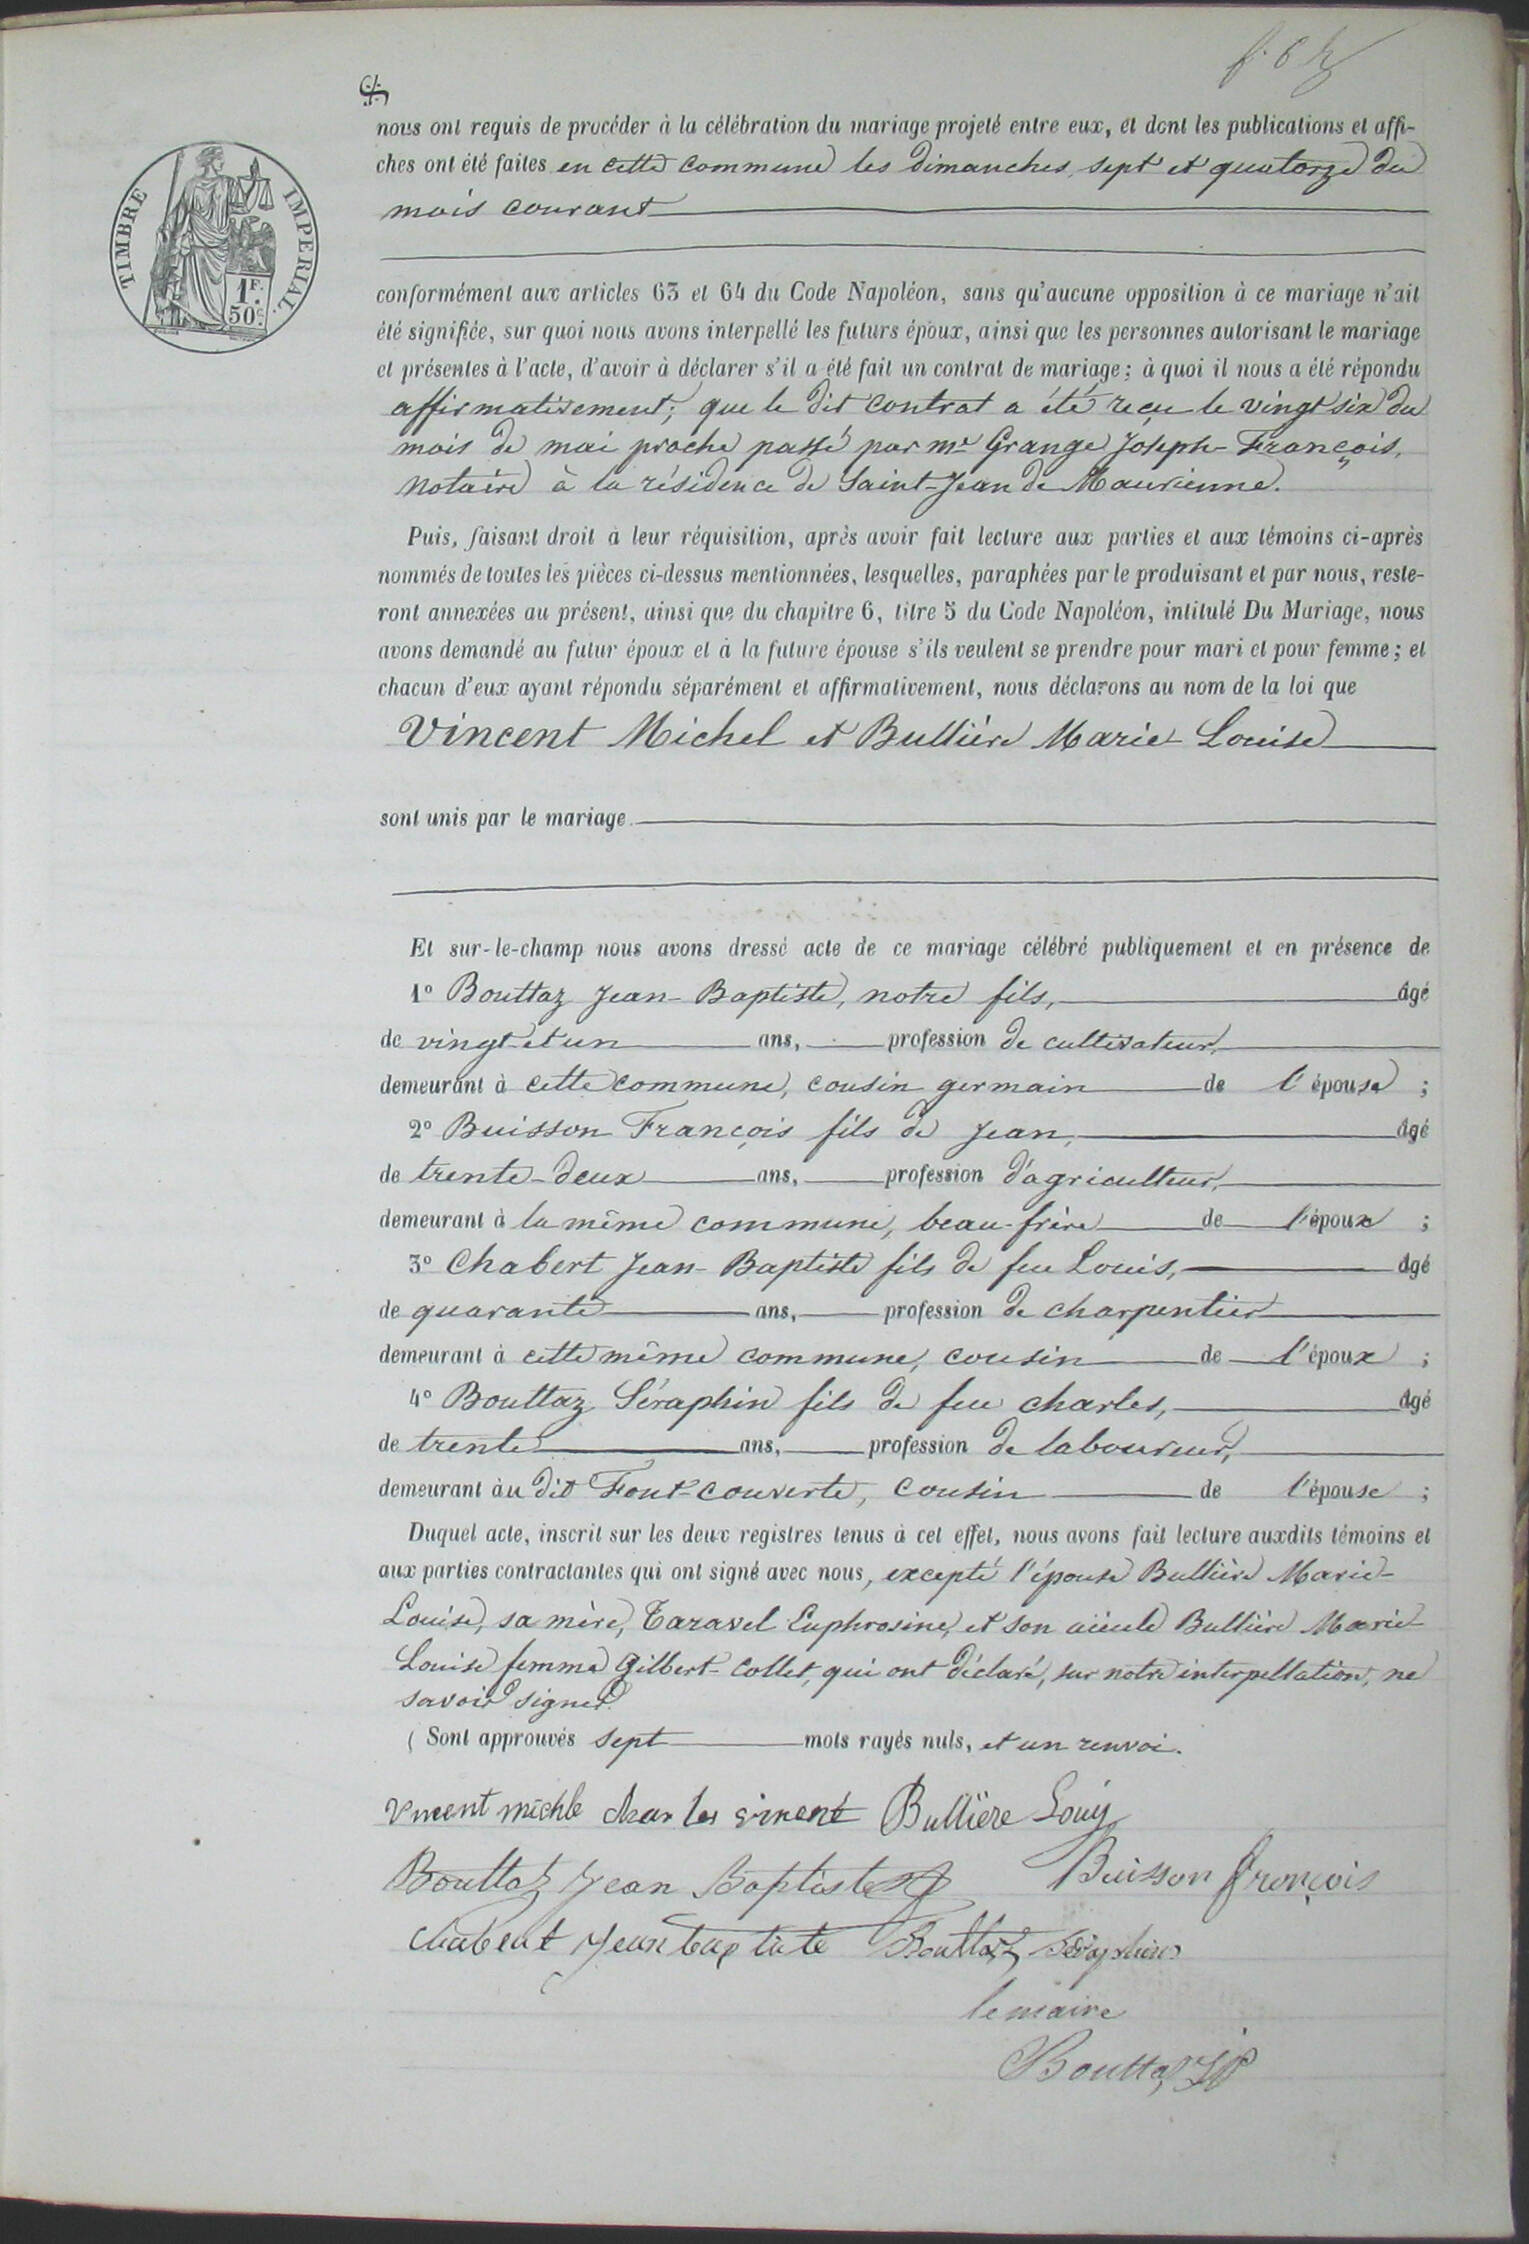 f. 6 
nous ont requis de procéder à la célébration du mariage projeté entre eux, et dont les publications et affi-
ches ont été faites en cette commune les dimanches, sept et quatorze du
mois courant
TIMBRE IMPERIAL.
1F.
50c.
conformément aux articles 63 et 64 du Code Napoléon, sans qu'aucune opposition à ce mariage n'ait
été signifiée, sur quoi nous avons interpellé les futurs époux, ainsi que les personnes autorisant le mariage
et présentes à l'acte, d'avoir à déclarer s'il a été fait un contrat de mariage ; à quoi il nous a été répondu
affirmativement; que le dit contrat a été reçu le vingt six du
mois de mai proche passé par me Grange Joseph-François,
notaire à la résidence de Saint-Jean de Maurienne.
Puis, faisant droit à leur réquisition, après avoir fait lecture aux parties et aux témoins ci-après
nommés de toutes les pièces ci-dessus mentionnées, lesquelles, paraphées par le produisant et par nous, reste-
ront annexées au présent, ainsi que du chapitre 6, titre 5 du Code Napoléon, intitulé Du Mariage, nous
avons demandé au futur époux et à la future épouse s'ils veulent se prendre pour mari et pour femme ; et
chacun d'eux ayant répondu séparément et affirmativement, nous déclarons au nom de la loi que
Vincent Michel et Bullière Marie-Louise
sont unis par le mariage
Et sur-le-champ nous avons dressé acte de ce mariage célébré publiquement et en présence de
1° Bouttaz Jean-Baptiste, notre fils, âgé
de vingt et un ans, profession de cultivateur,
demeurant à cette commune, cousin germain de l'épouse ;
2° Buisson François fils de Jean, âgé
de trente-deux ans, profession d'agriculteur,
demeurant à la même commune, beau-frère de l'époux ;
3° Chabert Jean-Baptiste fils de feu Louis, âgé
de quarante ans, profession de charpentier
demeurant à cette même commune, cousin de l'époux ;
4° Bouttaz Séraphin fils de feu Charles, âgé
de trente ans, profession de laboureur,
demeurant àu dit Font-couverte, cousin de l'épouse ;
Duquel acte, inscrit sur les deux registres tenus à cet effet, nous avons fait lecture auxdits témoins et
aux parties contractantes qui ont signé avec nous, excepté l'épouse Bullière Marie-
Louise, sa mère, Taravel Euphrosine, et son aïeule Bullière Marie-
Louise femme Gilbert-Collet, qui ont déclaré, sur notre interpellation, ne
savoir signer.
( Sont approuvés sept mots rayés nuls, et un renvoi.
Vincent michle charles vincent Bullière Louis
Bouttaz Jean Baptiste Buisson françois
chabert Jean baptiste Bouttaz Séraphin
le maire
Bouttaz JP